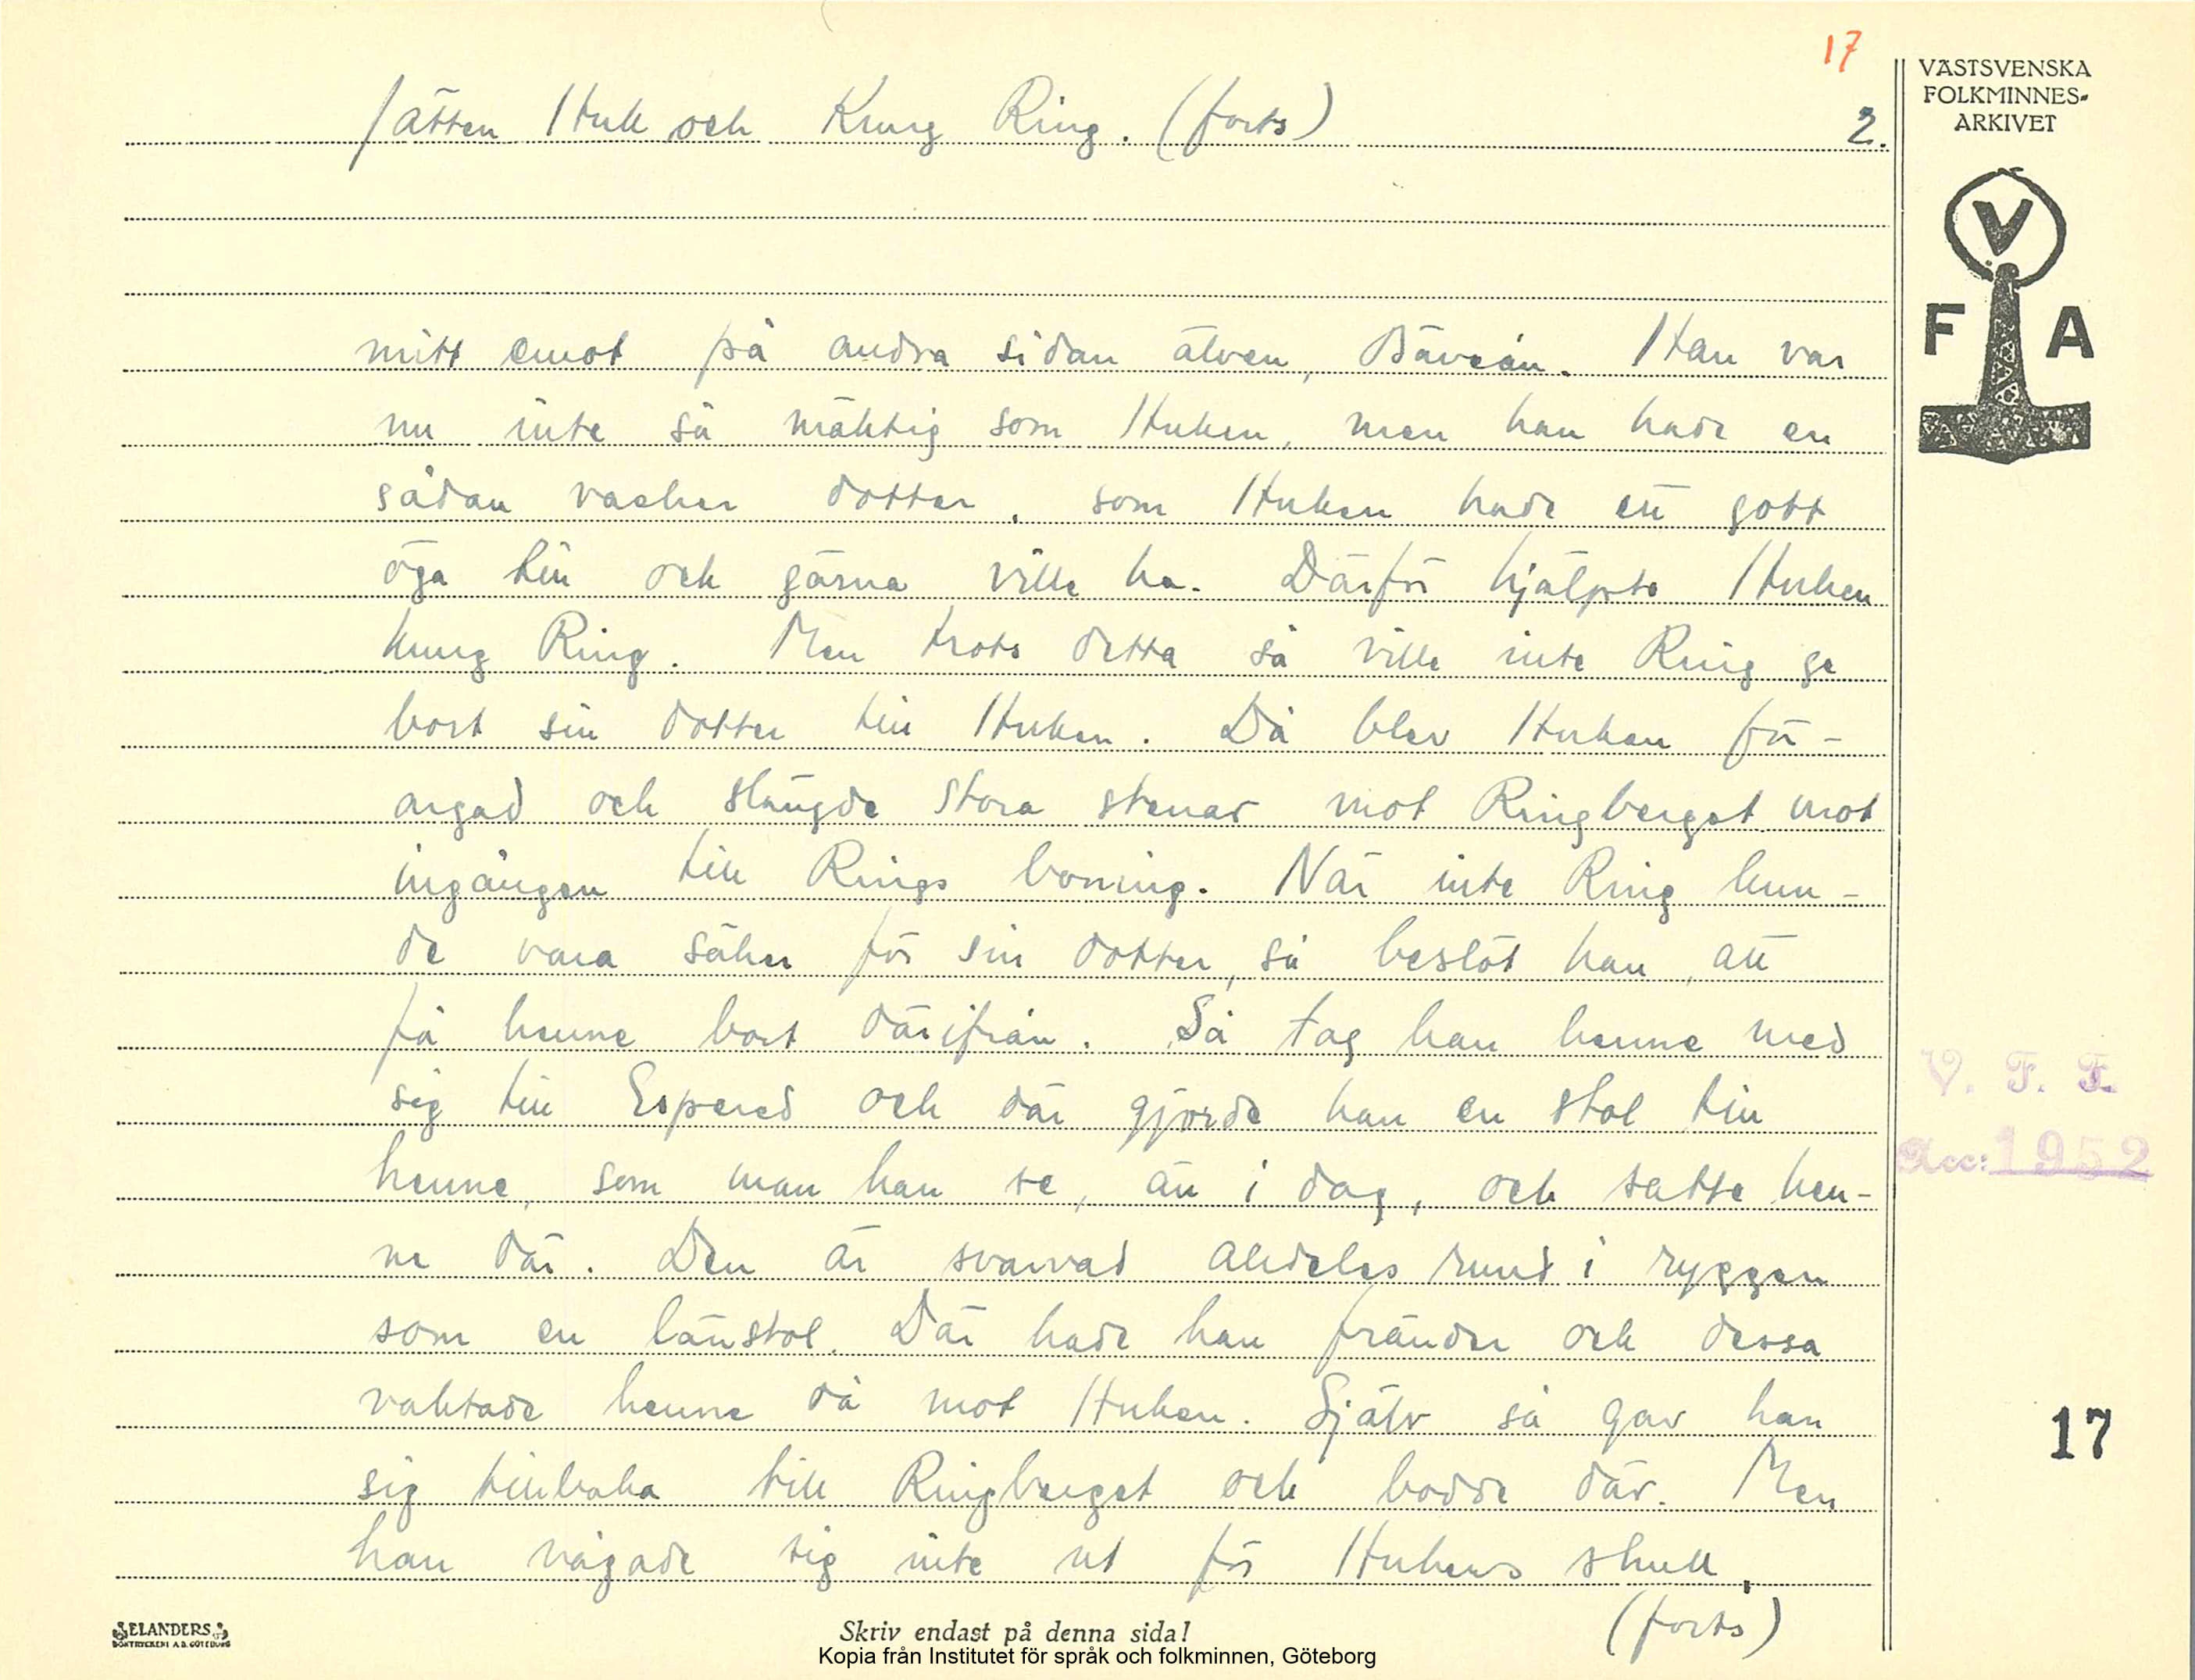 17
VÄSTSVENSKA
FOLKMINNES-
ARKIVET
Jätten Huk och Kung Ring. (forts) 2.
V
F A
mitt emot på andra sidan älven, Bäveån. Han var
nu inte så mäktig som Huken, men han hade en
sådan vacker dotter, som Huken hade ett gott
öga till och gärna ville ha. Därför hjälpte Huken
kung Ring. Men trots detta så ville inte Ring ge
bort sin dotter till Huken. Då blev Huken för-
argad och slängde stora stenar mot Ringberget mot
ingången till Rings boning. När inte Ring kun-
de vara säker för sin dotter, så beslöt han, att
få henne bort därifrån. Så tag han henne med
sig till Espered och där gjorde han en stol till
henne, som man kan se, än i dag, och satte hen-
ne där. Den är svarvad alldeles rund i ryggen
som en länstol. Där hade han fränder och dessa
vaktade henne då mot Huken. Själv så gav han
sig tillbaka till Ringberget och bodde där. Men
han vågade sig inte ut för Hukens skull,
(forts)
V. F. F.
Acc: 1952
17
ELANDERS
BOKTRYCKERI A.B. GÖTEBORG
Skriv endast på denna sida!
Kopia från Institutet för språk och folkminnen, Göteborg